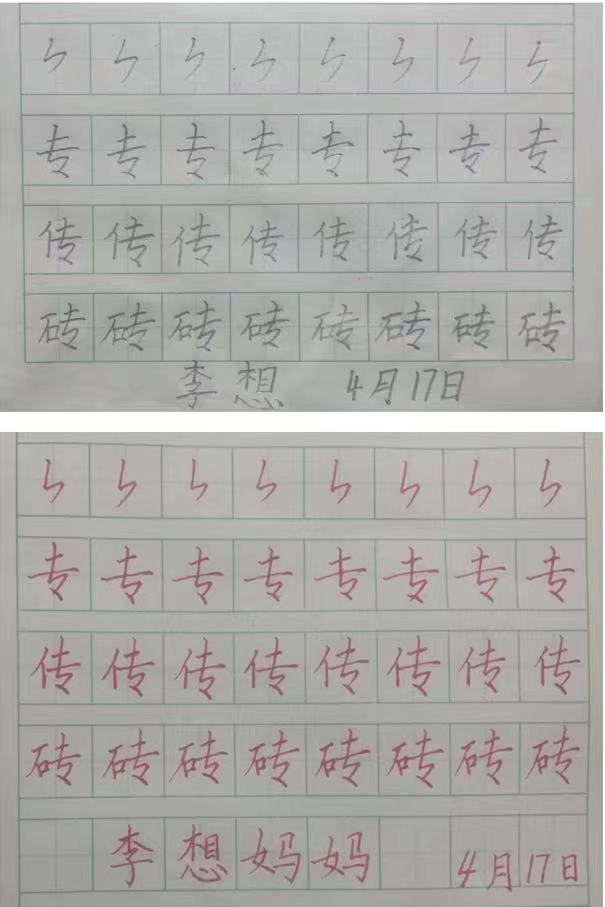 ㄣ ㄣ ㄣ ㄣ ㄣ ㄣ ㄣ ㄣ
专 专 专 专 专 专 专 专
传 传 传 传 传 传 传 传
砖 砖 砖 砖 砖 砖 砖 砖
李 想 4月17日
ㄣ ㄣ ㄣ ㄣ ㄣ ㄣ ㄣ ㄣ
专 专 专 专 专 专 专 专
传 传 传 传 传 传 传 传
砖 砖 砖 砖 砖 砖 砖 砖
李 想 妈 妈 4月17日